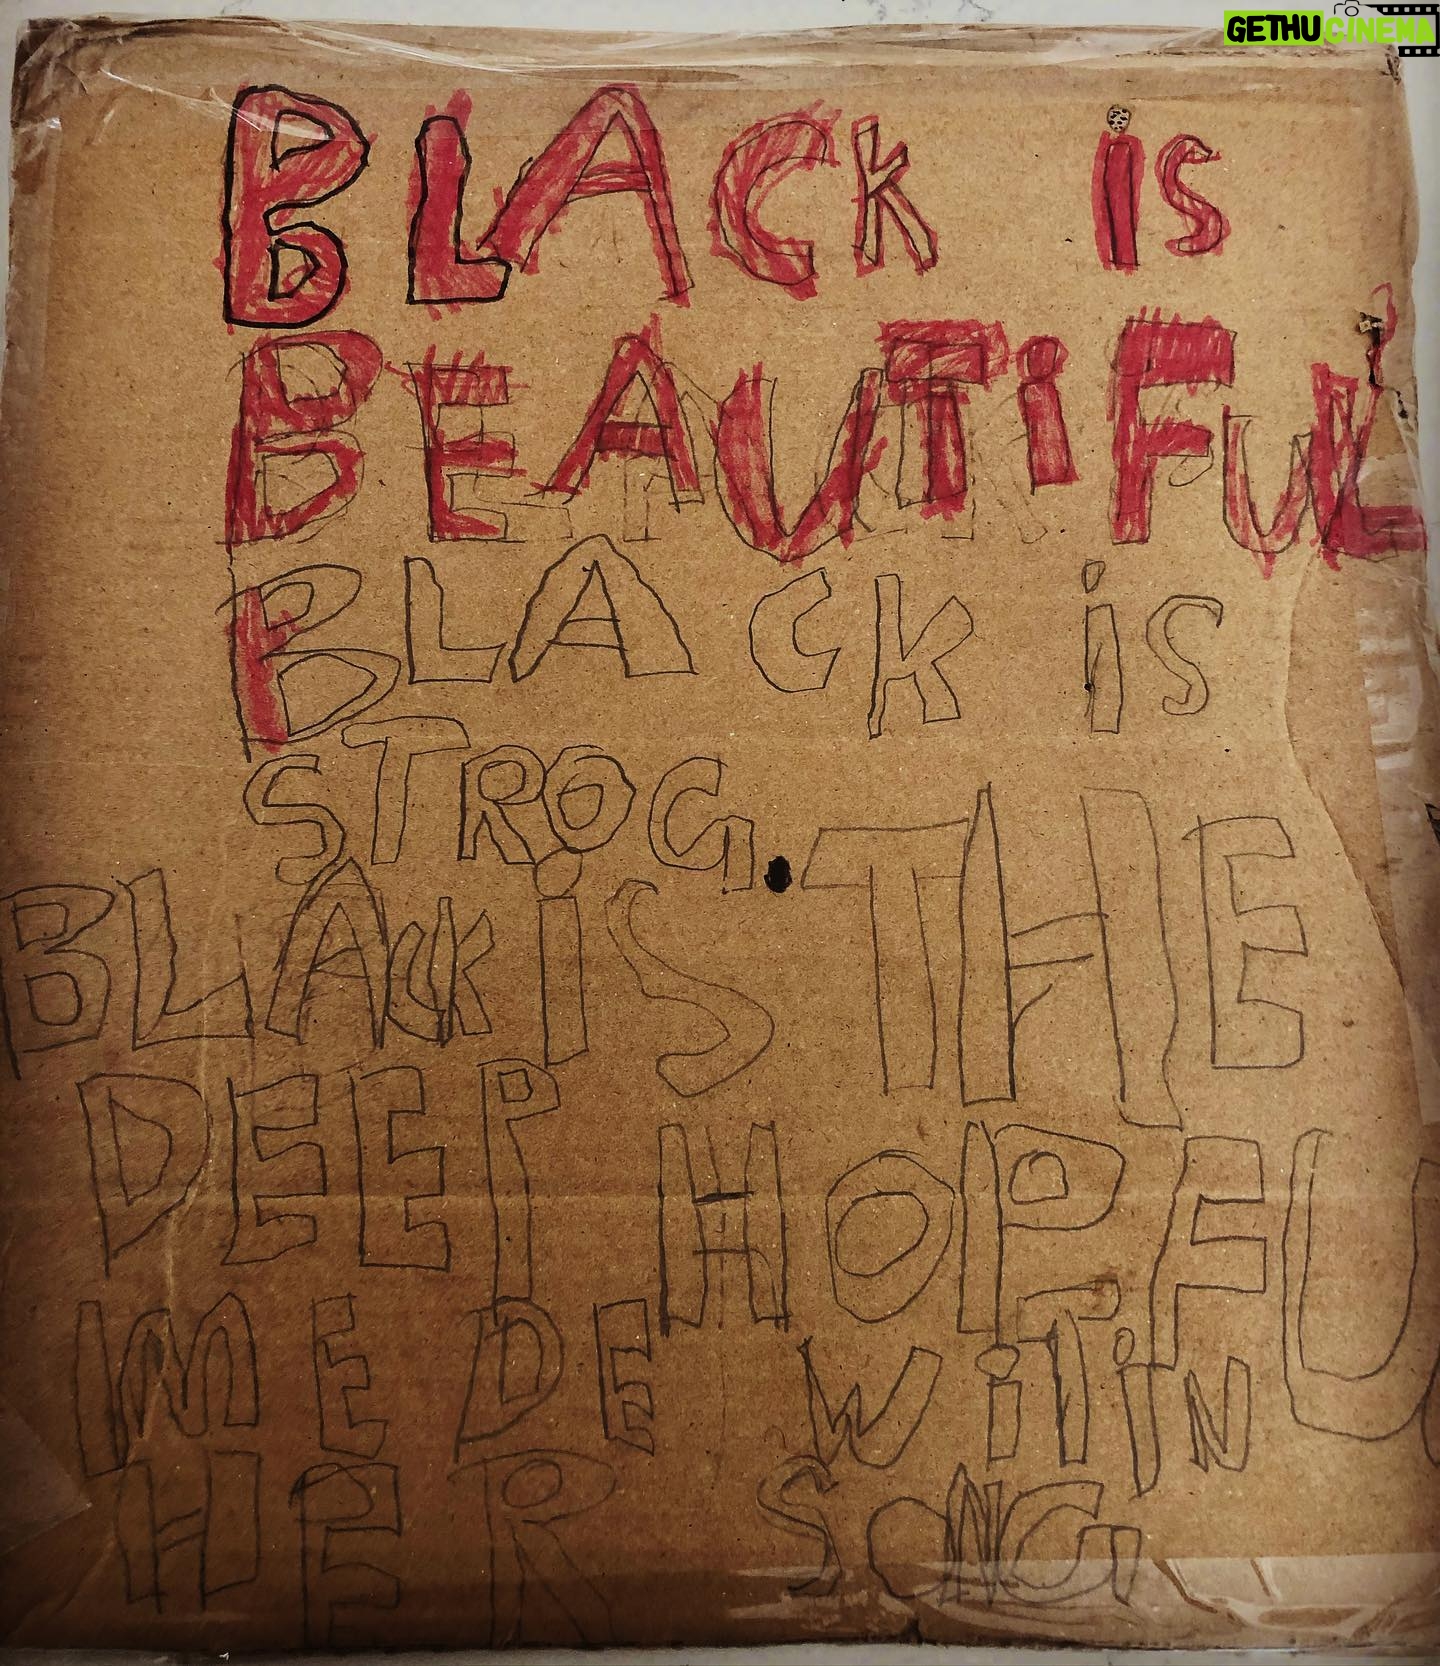 GETHUCINEMA
BLACK iS
BEAUTiFUL
BLACK iS
STROG.
BLACK iS THE
DEEP HOPEFU
IMEDE WiTiN
HER SONG